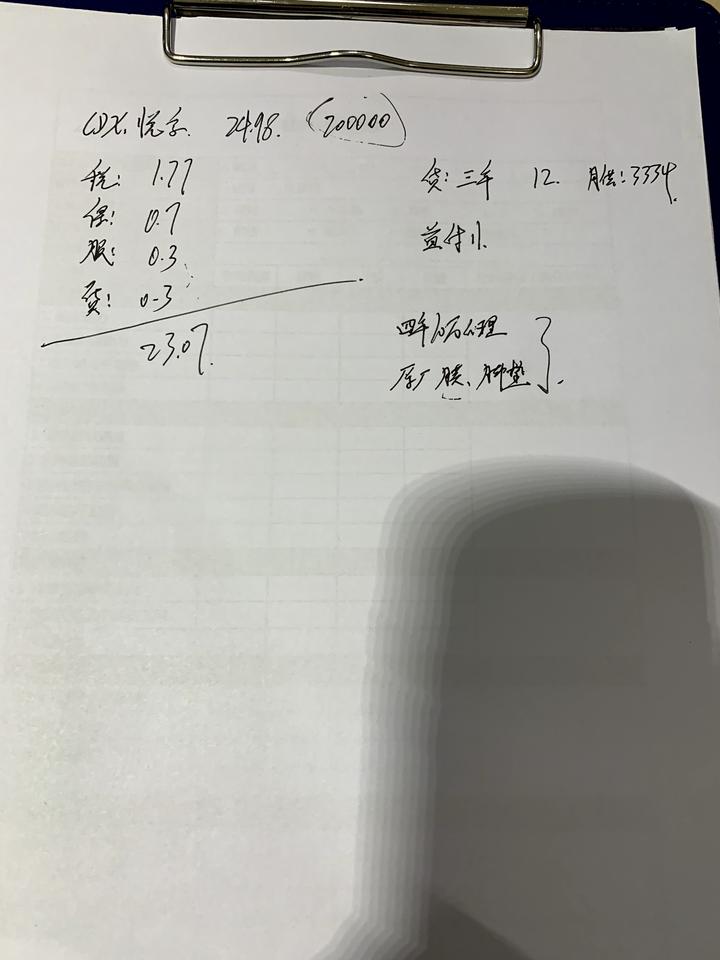 CDX. 悦享. 24.98. (200000)
税: 1.77
保: 0.7
服: 0.3
贷: 0.3
23.07.
贷: 三年 12. 月供: 3334.
首付11.
四年10万公里
原厂膜、脚垫